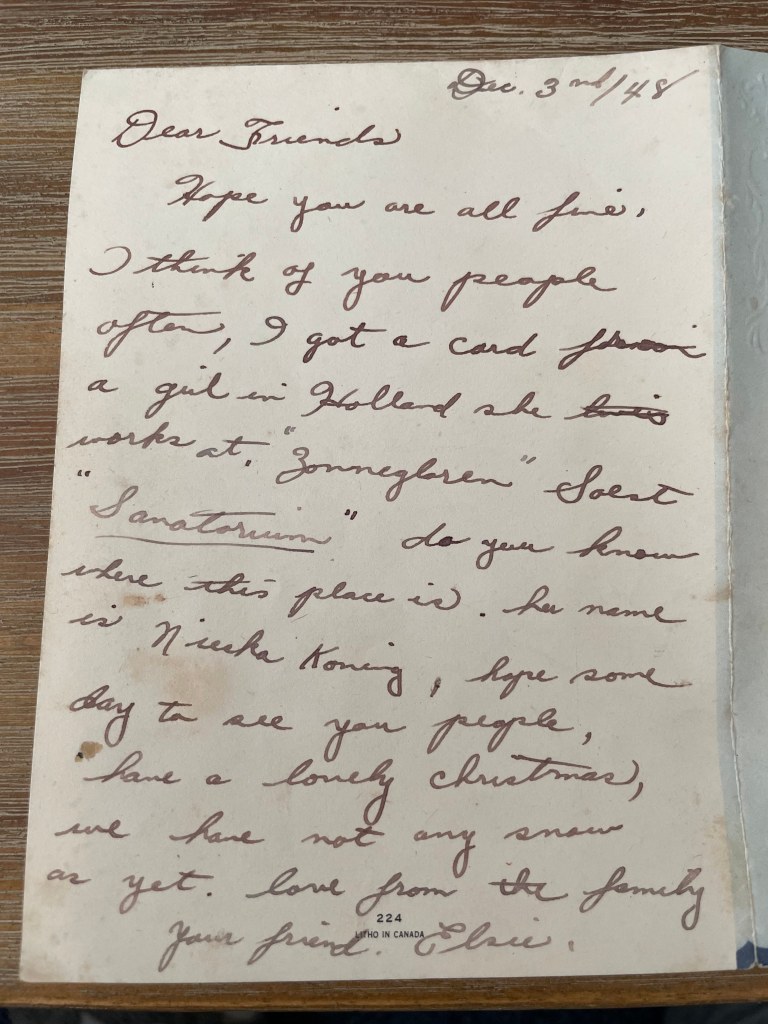 Dec. 3nd/48
Dear Friends
Hope you are all fine.
I think of you people
often, I got a card from
a girl in Holland she
works at. "Zonneglaren" Soest
"Sanatorium" do you know
where this place is. her name
is Nieska Koning, hope some
day to see you people,
have a lovely christmas,
we have not any snow
as yet. love from the family
224
LITHO IN CANADA
Your friend. Elsie.